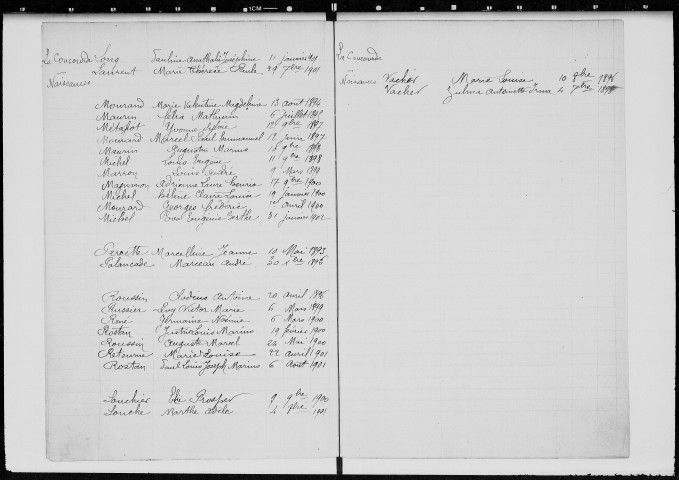 1CM
La Concorde Long Pauline Anathalie Joséphine 11 janvier 1901
Laurent Marie Thérèse Paule 29 7bre 1901
Naissances
Mourard Marie Valentine Magdeleine 13 août 1894
Maurin Félix Mathurin 6 juillet
Métafiot Yvonne 9bre 1897
Mourard Marcel Paul Emmanuel 12 juin 1897
Maurin Augustin Marius 18 9bre 1898
Michel Louis Eugène 11 9bre 1898
Marron Louis André 9 Mars
Magnan Adrienne Laure 17 9bre 1900
Michel Hélène Claire Louise 19 janvier 1900
Mourard Georges Frédéric avril 1900
Michel Eugénie Berthe 31 janvier 1902
Marcelline Jeanne 10 Mai 1893
Palancade Marceau André 30 Xbre 1896
Roussin Clodius Antoine 20 avril 1896
Russier Guy Victor Marie 6 Mars 1899
René Germaine Noémie 6 Mars 1900
Rostan Justin Louis Marius 19 février 1900
Roussin Auguste Marcel 24 Mai 1900
Retourné Marie Louise 22 avril 1901
Rostan Paul Louis Joseph Marius 6 Août 1901
Prosper 9 9bre 1900
Marthe Adèle 4 9bre 1901
La Concorde
Naissances Vacher Marie Louise 10 9bre 1896
Vacher Zulma Antoinette 4 7bre